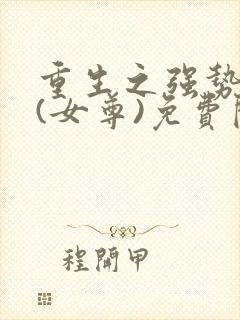 重生之强势
(女尊)免費
程開甲